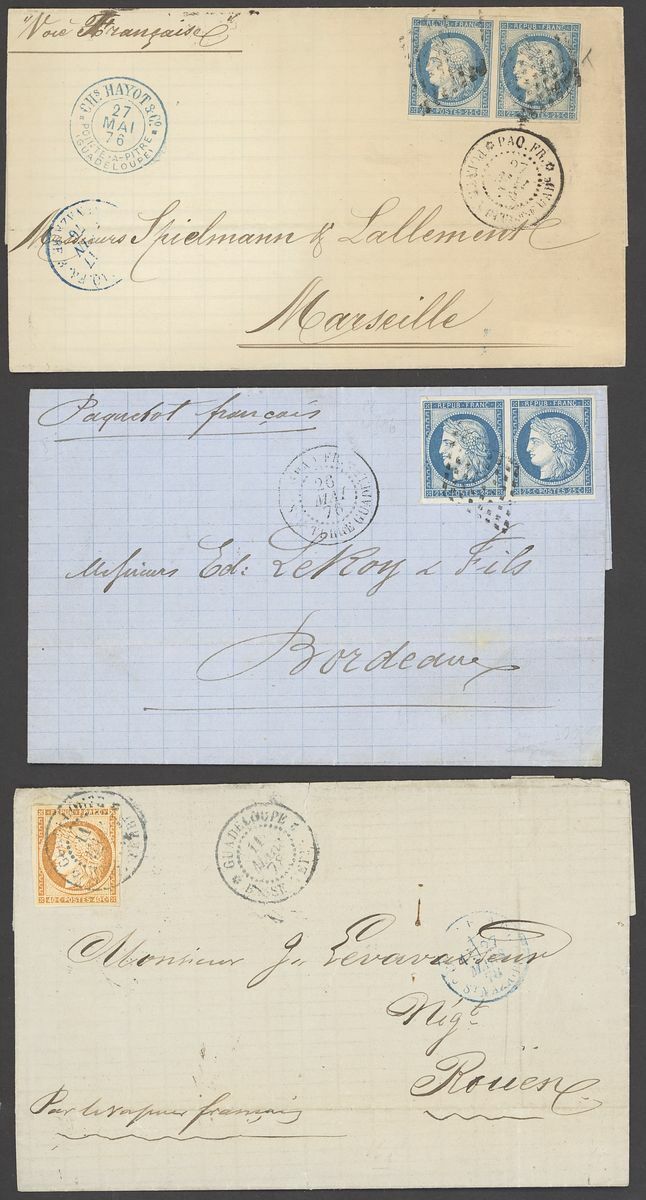 "Voie Française"
REPUB·FRANC·
REPUB·FRANC·
25·C·POSTES·25·C·
CHs HAYOT & Co.
27
MAI
76
POINTE-A-PITRE
(GUADELOUPE)
PAQ. FR.
27
17
Messieurs Spielmann & Lallement
Marseille
Paquebot français
REPUB·FRANC·
REPUB·FRANC·
25·C·POSTES·25·C·
25·C·POSTES·25·C·
26
MAI
76
Messieurs Ed: LeRoy & Fils
Bordeaux
40·C·POSTES·40·C·
11
GUADELOUPE
11
MARS
76
27
MARS
76
Monsieur J. Levavasseur
Négt.
Rouen
Par le vapeur français